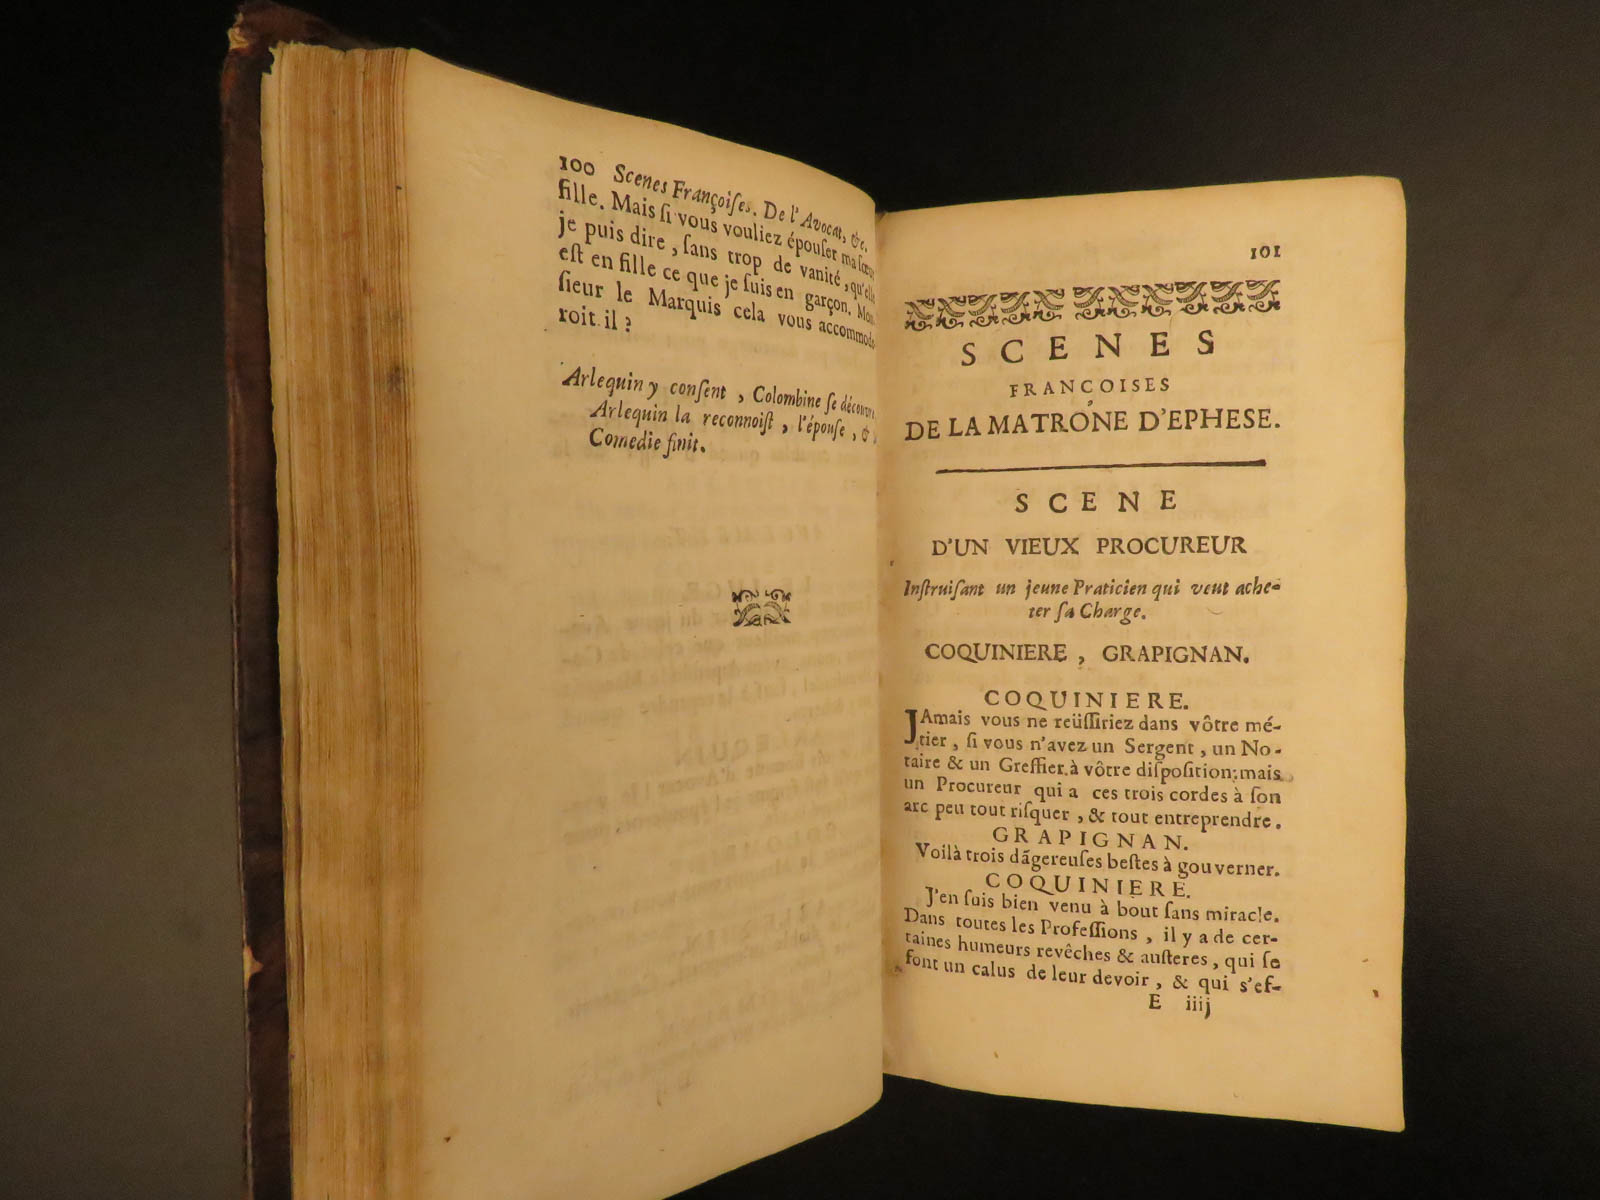 100 Scenes Françoiſes. De l'Avocat, &c.
fille. Mais ſi vous vouliez épouſer ma ſœur
je puis dire, ſans trop de vanité, qu'elle
eſt en fille ce que je ſuis en garçon. Mon-
ſieur le Marquis cela vous accommode-
roit-il ?
Arlequin y conſent, Colombine ſe découvre,
Arlequin la reconnoiſt, l'épouſe, &
Comedie finit.
101
SCENES
FRANÇOISES
DE LA MATRONE D'EPHESE.
SCENE
D'UN VIEUX PROCUREUR
Inſtruiſant un jeune Praticien qui veut ache-
ter ſa Charge.
COQUINIERE, GRAPIGNAN.
COQUINIERE.
JAmais vous ne reüſſiriez dans vôtre mé-
tier, ſi vous n'avez un Sergent, un No-
taire & un Greffier à vôtre diſpoſition; mais
un Procureur qui a ces trois cordes à ſon
arc peu tout riſquer, & tout entreprendre.
GRAPIGNAN.
Voilà trois dãgereuſes beſtes à gouverner.
COQUINIERE.
J'en ſuis bien venu à bout ſans miracle.
Dans toutes les Profeſſions, il y a de cer-
taines humeurs revêches & auſteres, qui ſe
font un calus de leur devoir, & qui s'ef-
E iiij